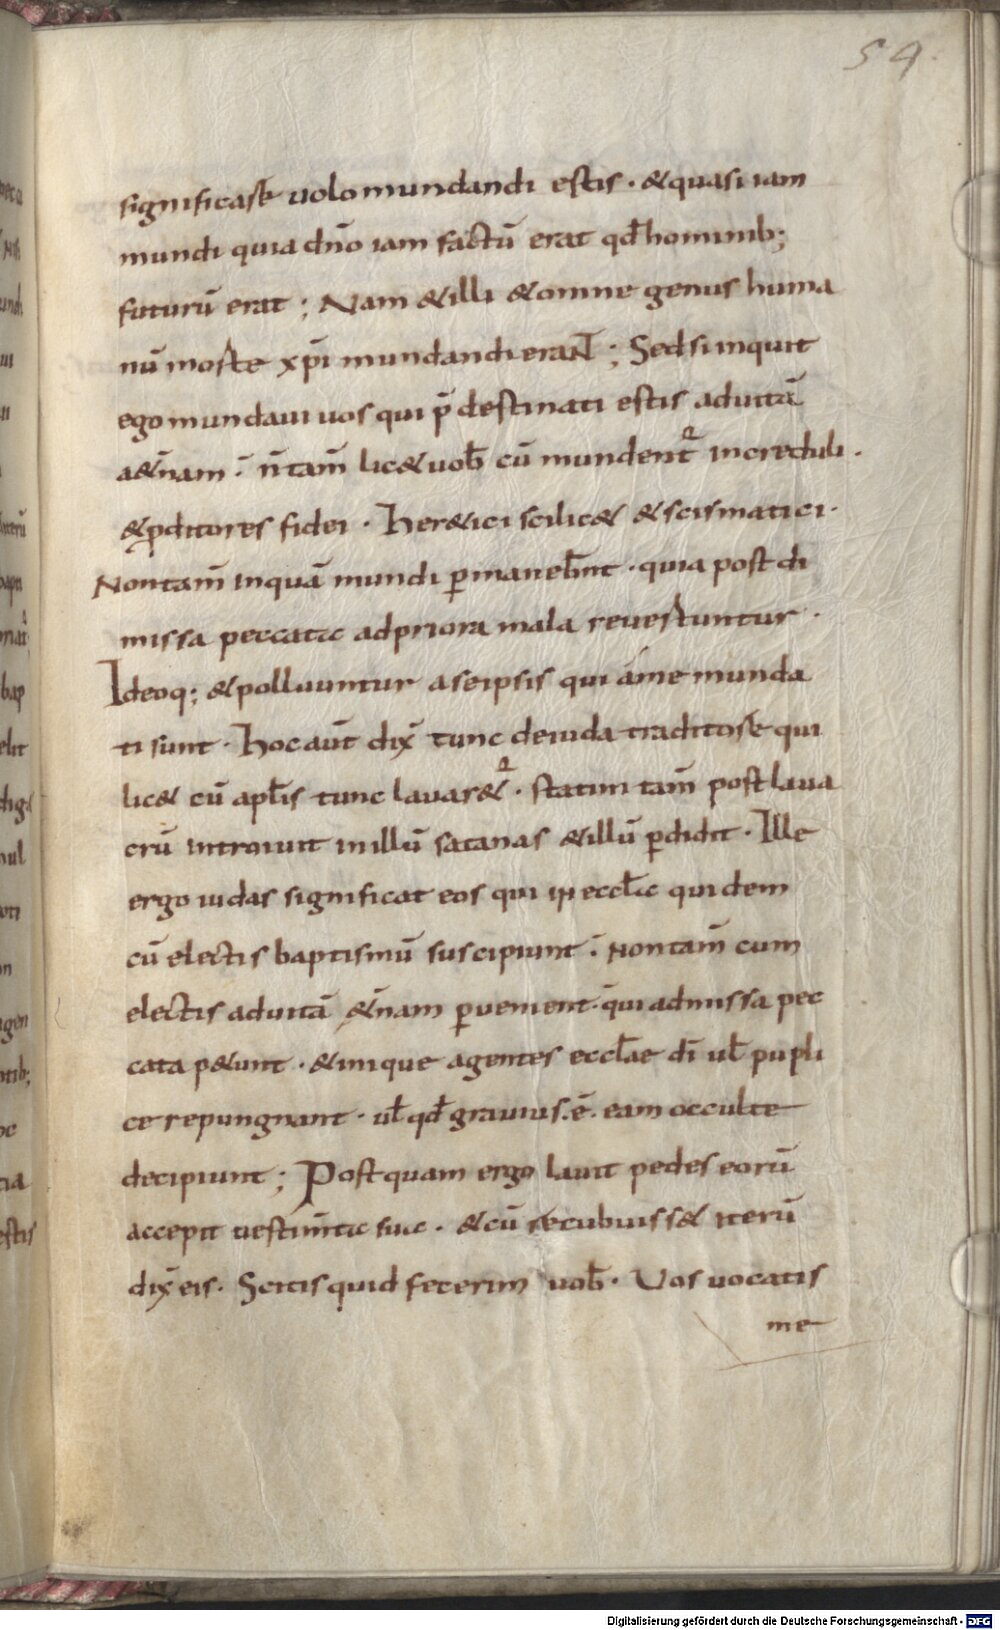 59.
significare uolo mundandi estis · & quasi iam
mundi quia dn̄o iam factū erat qd̄ hominib;
futurū erat ; Nam & illi & omne genus huma
nū morte xp̄i mundandi erant ; Sed si inquit
ego mundaui uos qui p̄destinati estis ad uitā
a&̄nam · n̄ tam̄ lic& uob̄ cū mundent᷑ increduli ·
& p̱ditores fidei · Her&ici scilic& & scismatici ·
Non tam̄ inquā mundi p̱maneb̄nt · quia post di
missa peccata ad priora mala reuertuntur ·
Ideoq; & polluuntur a seipsis qui á me munda
ti sunt · Hoc aūt dix̄ tunc de iuda traditore qui
lic& cū apl̄is tunc lauar&᷑ · statim tam̄ post laua
crū introiuit in illū satanas & illū p̱didit · Ille
ergo iudas significat eos qui in eccl̄ia quidem
cū electis baptismū suscipiunt · Non tam̄ cum
electis ad uitā &̄nam p̱uenient · qui admissa pec
cata p&unt · & inique agentes eccl̄ae dī ul̄ pupli
ce repungnant · ul̄ qd̄ grauius · ē · eam occulte
decipiunt ; Postquam ergo lauit pedes eorū
accepit uestim̄ta sua · & cū recubuiss& iterū
dix̄ eis · Scitis quid fecerim uob̄ · Uos uocatis
me
Digitalisierung gefördert durch die Deutsche Forschungsgemeinschaft - DFG